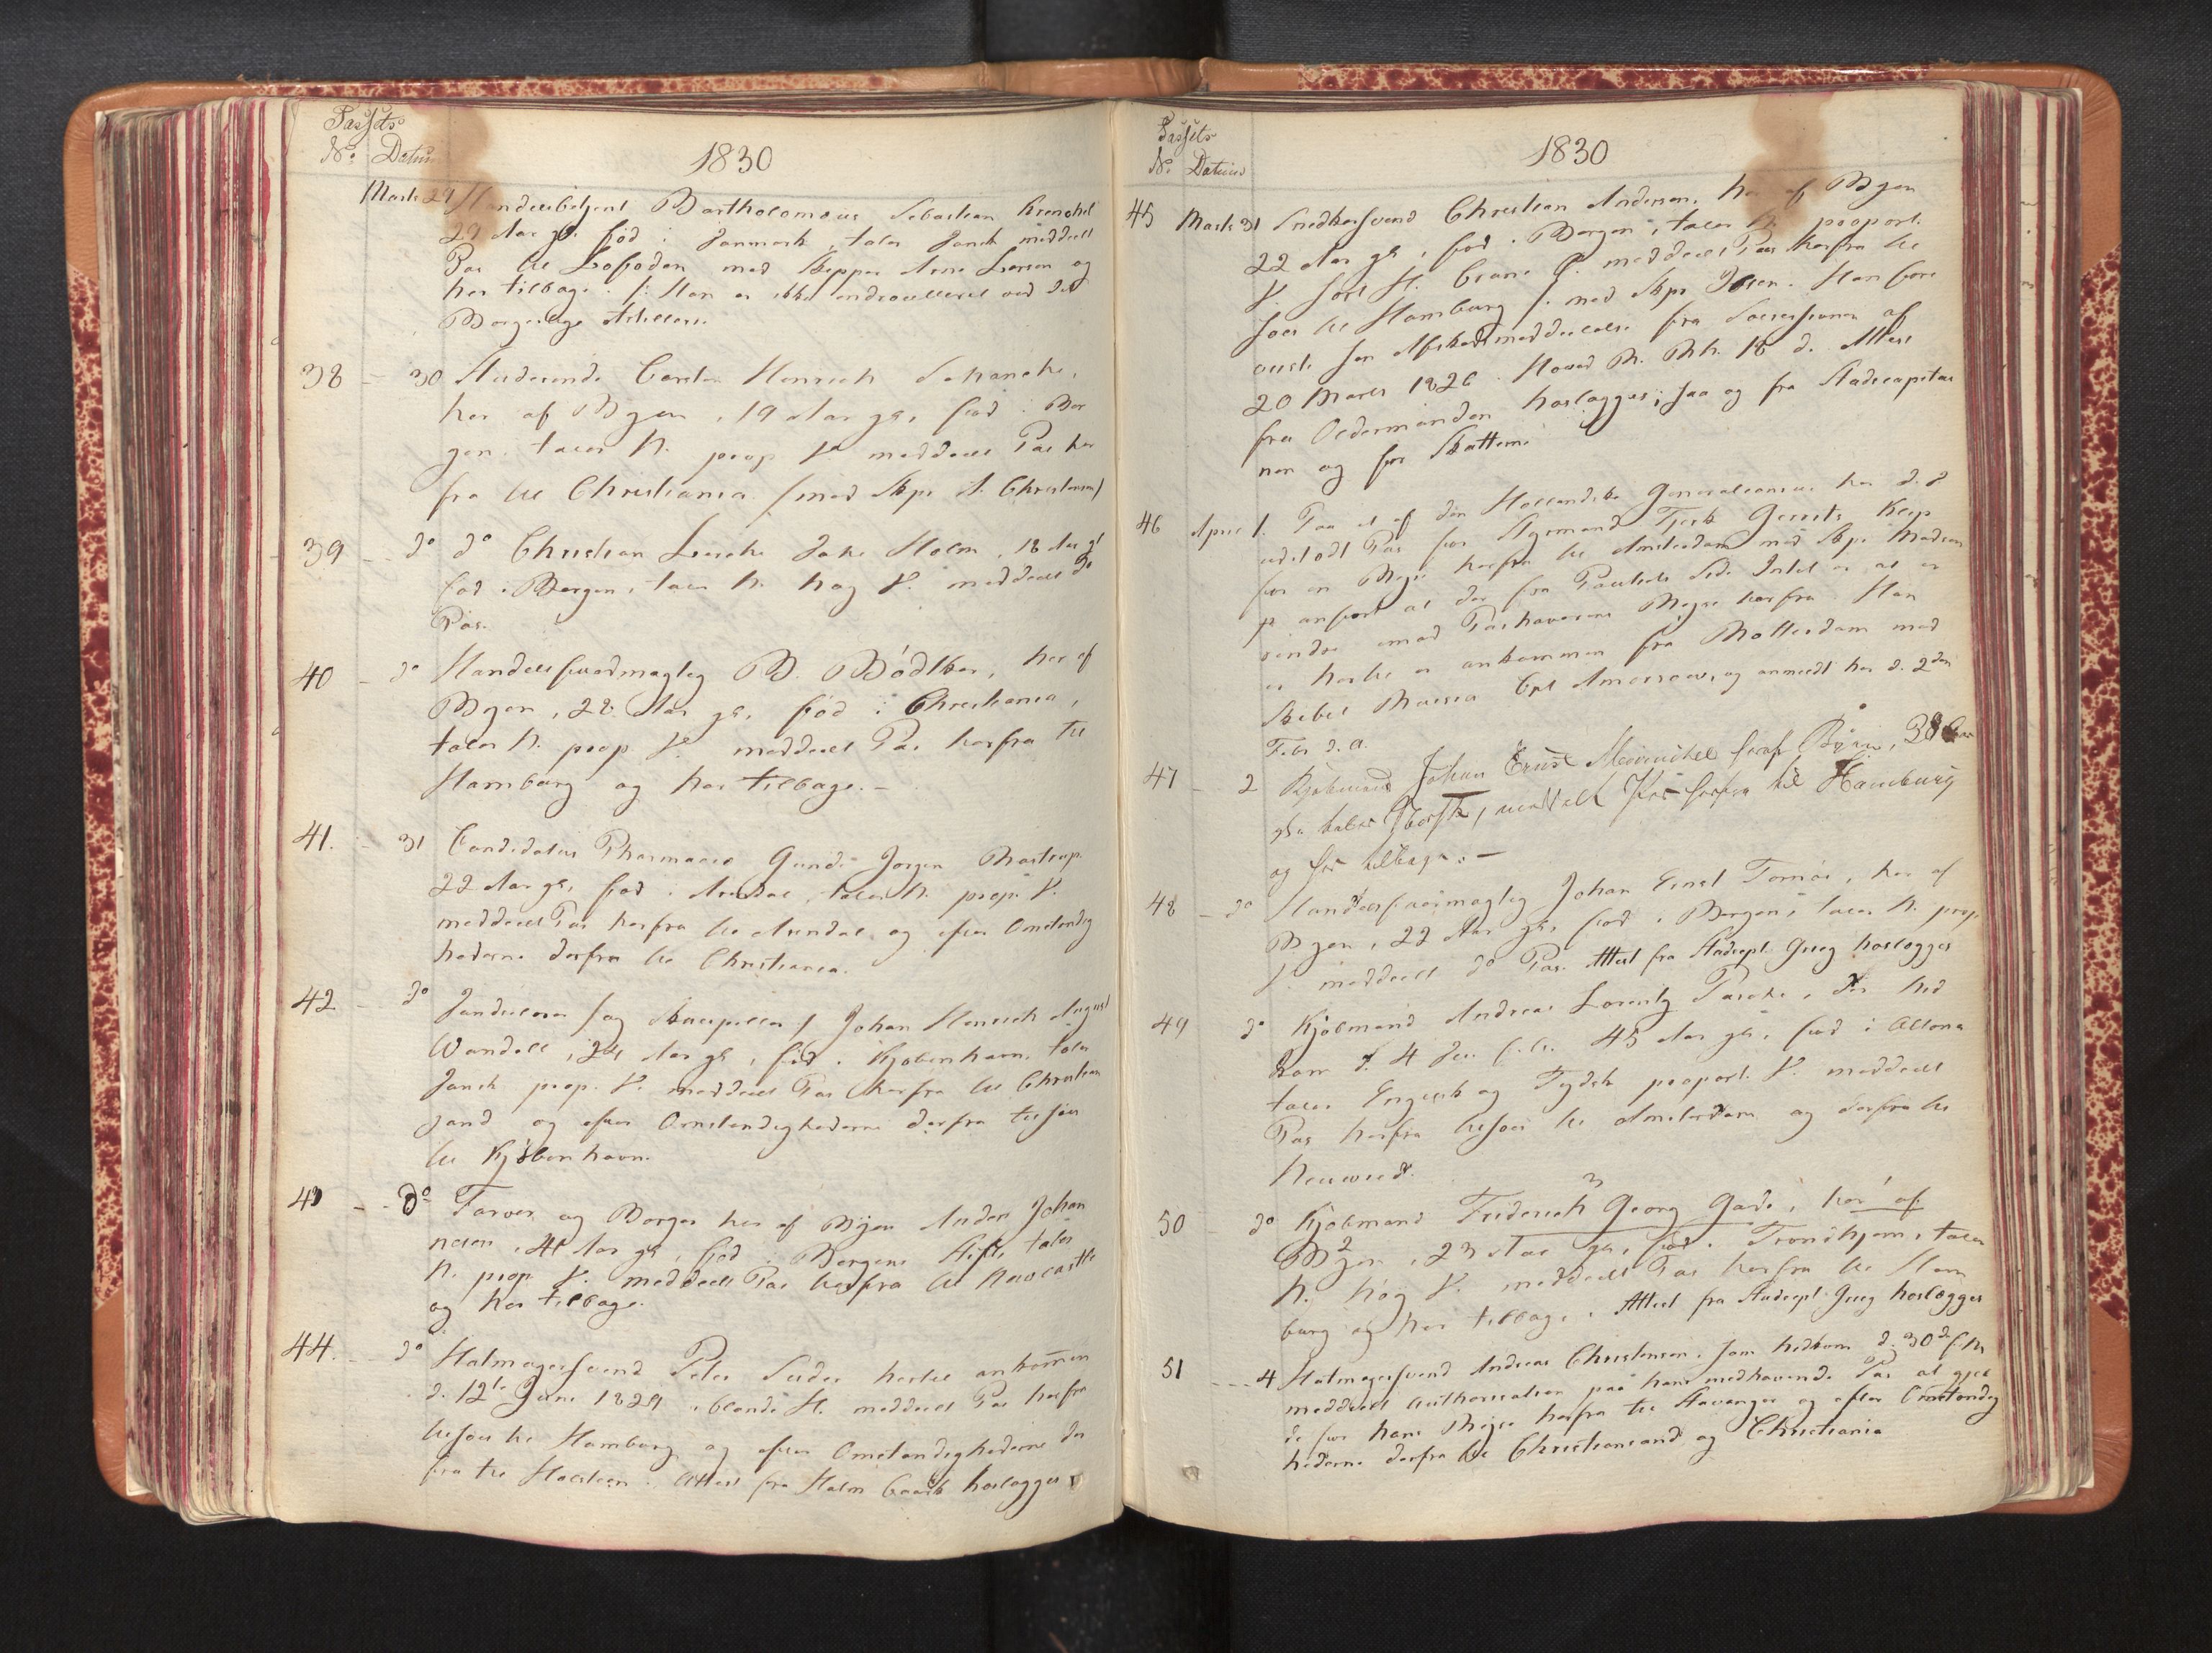 Passets
No Datum
1830
Marts 29 Handelsbetjent Bartholomæus Sebastian Krenchel
29 Aar gl. fød i Danmark, taler Dansk meddeelt
Pas til Lofoden med Skipper Arne Larsen og
her tilbage. /: Han er ikke endrouelleret ved det
Borgerlige Artilleri.
38 - 30 Studerende Carsten Henrich Schancke,
her af Byen, 19 Aar gl., fød i Ber
gen, taler N. prop V. meddeelt Pas her
fra til Christiania /med Skpr A. Christensen/
39 - do do Christian Lerche Dahl Holm, 18 Aar gl
fød i Bergen, taler N. høg V. meddeelt do
Pas.
40 - do Handelsfuldmægtig B. Bødtker, her af
Byen, 28 Aar gl. fød i Christiania,
taler N. prop V. meddeelt Pas herfra til
Hamburg og her tilbage. -
41. - 31 Candidatus Pharmacie Jørgen Thastrup
22 Aar gl. fød i Arendal, taler N. prop. V.
meddeelt Pas herfra til Arendal og efter Omstændig
hederne derfra til Christiania.
42 - do Johan Henrich August
Wandall, 24 Aar gl, fød i Kjøbenhavn, taler
Dansk prop. V. meddeelt Pas herfra til Christian
sand og efter Omstændighederne derfra tilsøes
til Kjøbenhavn.
43 - do Farver og Borger her af Byen Anders Johan
nesen, 41 Aar gl, fød i Bergens Stift, taler
N. prop V. meddeelt Pas herfra til Newcastle
og her tilbage.
44. do Halmagersvend Peter hertil ankommen
d. 12te Juni 1829, blonde H. meddeelt Pas herfra
tilsøes til Hamburg og efter Omstændighederne der
fra til Holsteen. Attest fra Halm hoslægges
Passets
No Datum
1830
45 Marts 31 Snedkersvend Christian Andersen, her af Byen
22 Aar gl, fød i Bergen, taler N. proport.
V. sort H. brune Ø. meddeelt Pas herfra til
søes til Hamburg /: med Skpr Olsen. Han fore
viiste sin Afskedsmeddeelelse fra Sessionen af
20 Marts 1826. Hoved R. Rk. 18 d. Attest
fra Oldermanden hoslægges; saa og fra Stadscapitai
nen og for Skatterne
46 April 1. Paa et af den Hollandske Generalconsul her d. d
udstædt Pas for Styrmand Tjerk Gerrits Kuip
for en Reise herfra til Amsterdam med Skpr Madsen
er anført at der fra Politiets Side Intet er at er
rindre imod Pashaverens Reyse herfra. Han
er hertil er ankommen fra Rotterdam med
Skibet Maria Cpt og anmeldt her d. 2den
Febr d. A.
47 - 2 Kjøbmand Johan Ernst Mowinckel her af Byen, 38 Aar
gl. taler Norsk, meddelt Pas herfra til Hamburg
og her tilbage. -
48 - do Handelsfuldmægtig Johan Ernst Tornöe, her af
Byen, 22 Aar gl, fød i Bergen, taler N. prop
V. meddeelt do Pas. Attest fra Stadscpt. Greg hoslægges
49 do Kjøbmand Andreas Lorentz Pasche, der hid
kom d. 4 Jan f. A. 45 Aar gl. fød i Altona
taler Engelsk og Tydsk proport. V. meddeelt
Pas herfra tilsøes til Amsterdam og derfra til
Neuwied.
50 do Kjøbmand Friderich Georg Gade, her af
Byen, 23 Aar gl, fød i Trondhjem, taler
N. høg V. meddeelt Pas herfra til Ham
burg og her tilbage. Attest fra Stadscpt Greg hoslægges
51 - 4 Halmagersvend Andreas Christensen, som hidkom d. 30 d. f. M
meddeelt Authorisation paa hans medhavende Pas at gjel
de for hans Reyse herfra til Stavanger og efter Omstændig
hederne derfra til Christiansand og Christiania